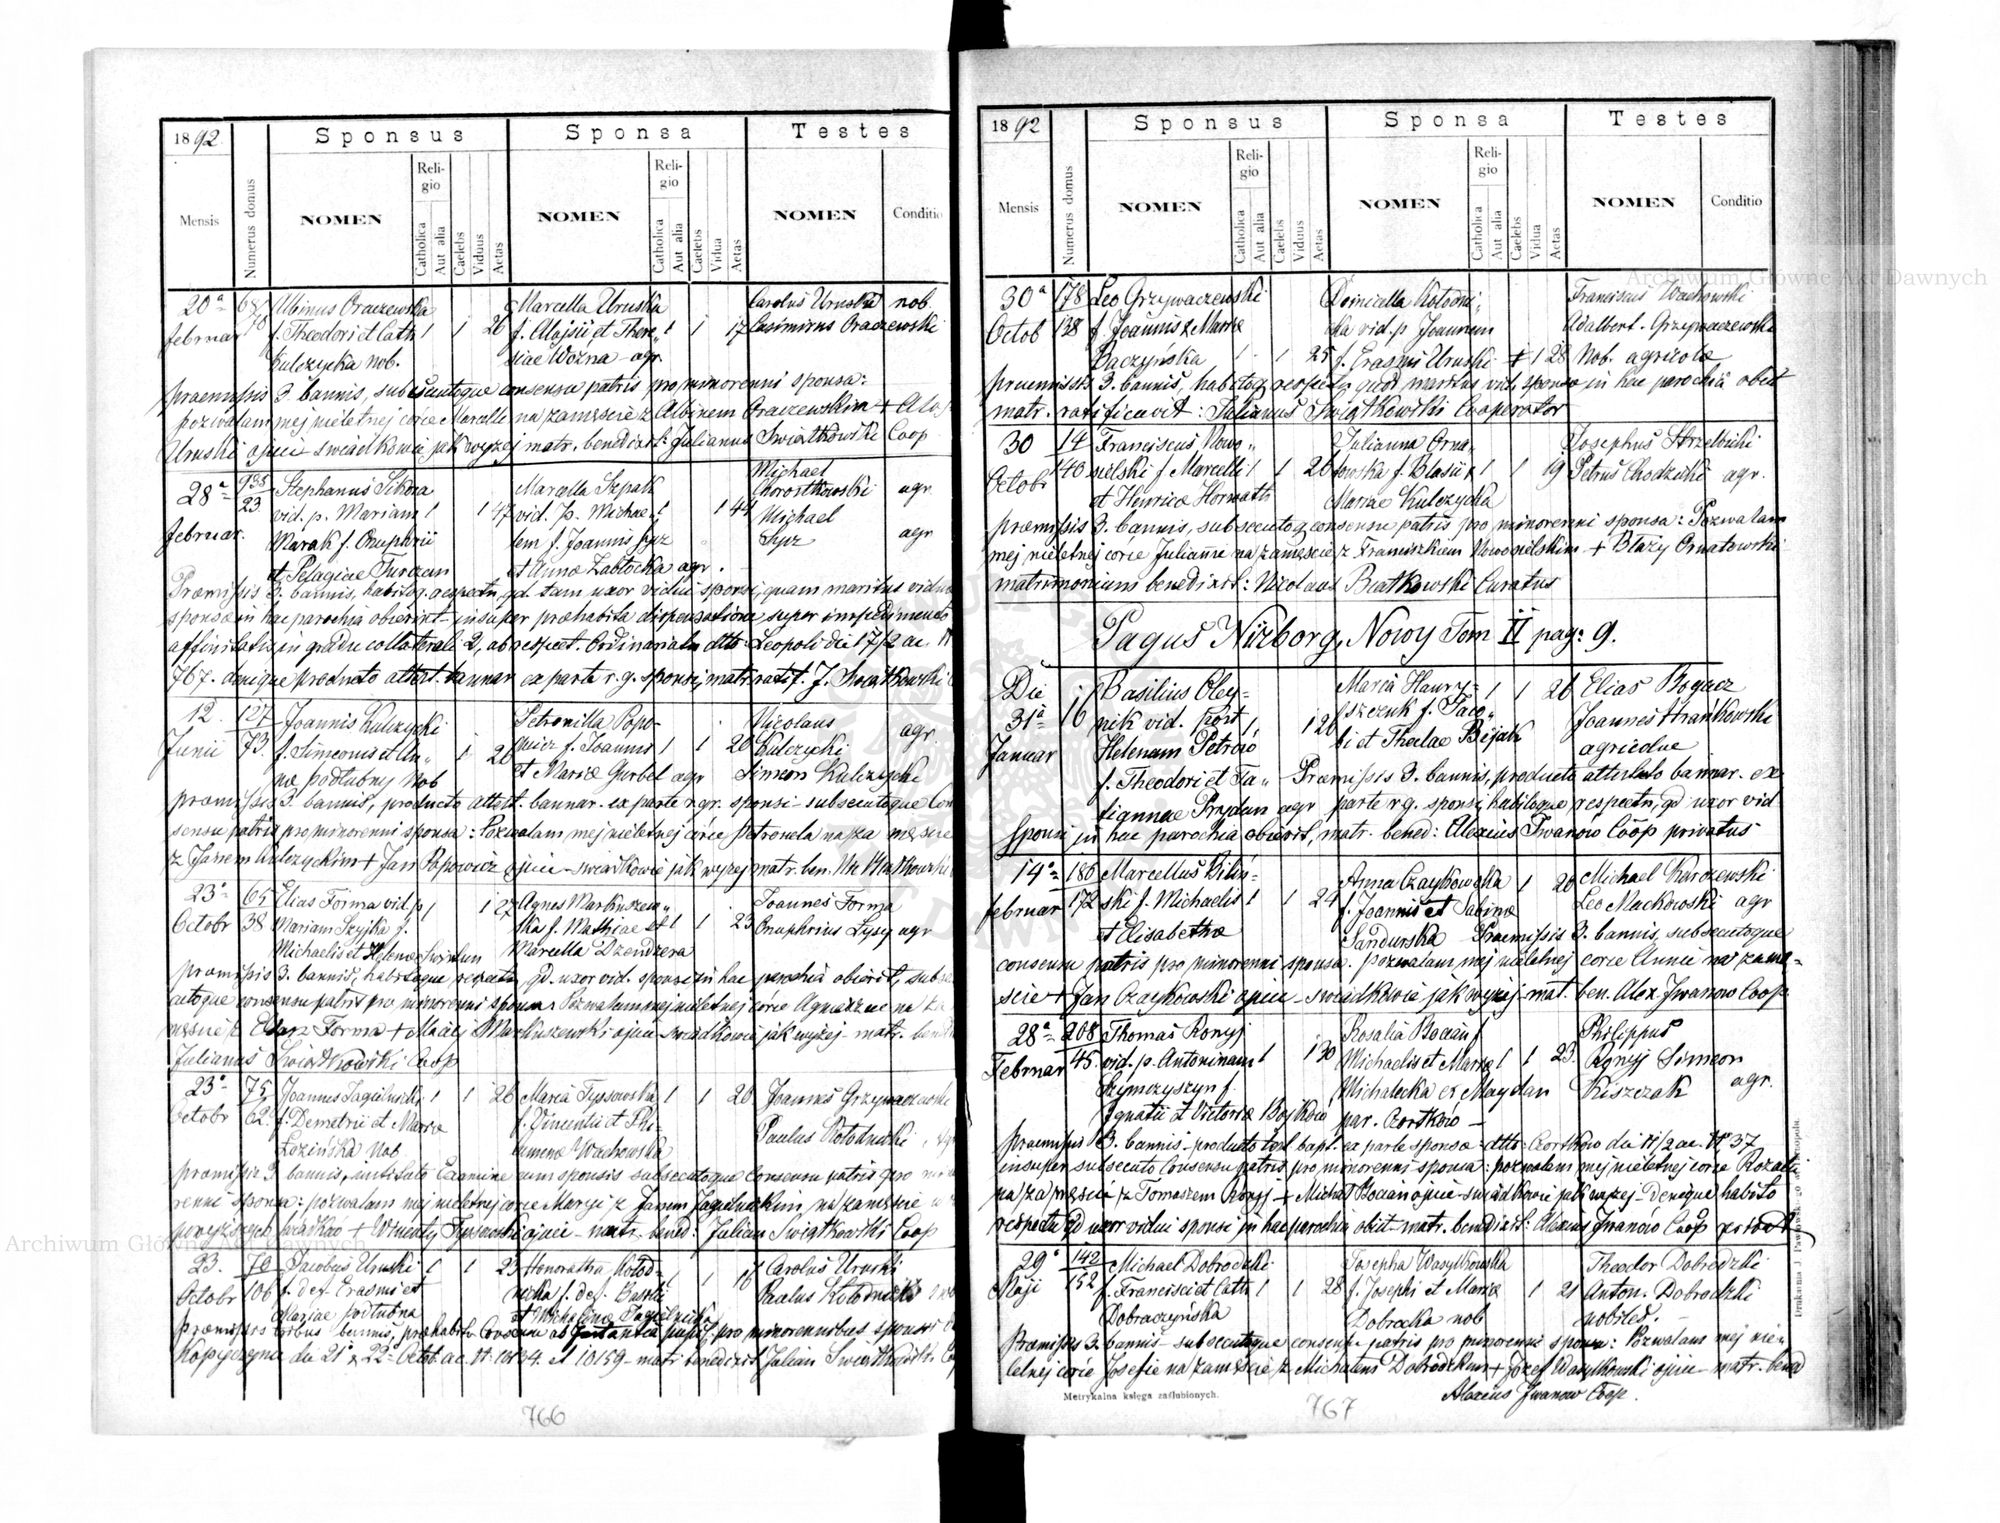 1892
Sponsus Sponsa Testes
Mensis Numerus domus NOMEN Religio Catholica Aut alia Caelebs Viduus Aetas NOMEN Religio Catholica Aut alia Caelebs Vidua Aetas NOMEN Conditio
20a 68/70 Albinus Oraczewski Marcella Uruska Carolus Uruski nob.
februar f. Theodori et Cath 1 1 26 f. Aloisii et There„ 1 1 17 Casimirus Oraczewski
Kulczycka nob. siae Wozna agr.
praemissis 3. bannis, subsecutoque consensu patris pro minorenni sponsa:
pozwalam mej nieletnej córce Marcelli na zamęscie z Albinem Oraczewskim +
Uruski ojciec swiadkowie jak wyzej matr. benedixit: Julianus Swiatkowski Coop
28a 935/23 Stephanus Sikora Marcella Szpak Michael
vid. p. Mariam 1 1 47 vid. p. Michae„ 1 1 44 Chorostkowski agr.
februar. Marak f. Onuphrii lem f. Joannis Syz Michael agr
et Pelagiae Turczan et Annae Zabłocka agr.
Praemissis 3. bannis, habitoq. respectu, qd. tam uxor vidui sponsi, quam maritus viduae
sponsae in hac parochia obierint insuper praehabita dispensatione super impedimento
affinitatis in gradu collaterali 2, ab respect. Ordinariatu dtto: Leopoli die 17/2 ac. N
767. denique producto attest. bannar ex parte r. g. sponsi, matr. ratif. J. Swiatkowski
12 127 Joannis Kulczycki Petronilla Popo- Nicolaus agr.
Junii 73. f. Simeonis et An„ 1 26 wicz f. Joannis 1 1 20 Kulczycki
nae podłubny Nob et Mariae Gurbel agr Simeon Kulczycki
praemissis 3. bannis, producto attest. bannar. ex parte r. gr. sponsi subsecutoque Con
sensu patris pro minorenni sponsa: Pozwalam mej nieletnej córce Petroneli na zamęscie
z Janem Kulczyckim + Jan Popowicz ojciec swiadkowie jak wyzej matr. ben.
23a 65 Elias Forma vid. p 1 1 27 Agnes Markuszew„ Joannes Forma
Octobr 38 Mariam Szyjka f. ska f. Mathiae et 1 1 23 Onuphrius Łysy agr
Michaelis et Helenae Marcella Dzendzera
praemissis 3. bannis, habitoque respectu, qd. uxor vid. sponsi in hac parochia obierit, subse
cutoque consensu patris pro minorenni sponsa: Pozwalam mej nieletnej córce Agnieszce na za
męscie z Elias Forma + Maciej Markuszewski ojciec swiadkowie jak wyżej matr.
Julianus Swiatkowski Coop
23a 75, Joannes Jagielnicki 1 1 26 Maria Tyssowska 1 1 20 Joannes Grzywaczewski
Octobr 62. f. Demetrii et Mariae f. Vincentii et Phi-
Łozińska Nob lumena Wachowska Paulus Kołodnicki
praemissis 3. bannis, instituto Examine cum sponsis subsecutoque Consensu patris pro mino
renni sponsa: pozwalam mej nieletnej córce Maryi z Janem Jagielnickim, na zamęscie w
powyzszych swiadków + Wincenty Tyssowski ojciec matr. bened: Julian Swiątkowski Coop
23. 76 Jacobus Uruski 1 1 23 Honoratha Kołod- 1 1 16 Carolus Uruski
Octobr 106 f. def. Erasmi et nicka f. def. Basilii Paulus Kołodnicki
Mariae podłubna et Michalinae Jagielnicka
praemissis tribus bannis, praehabito Consensu ab Instantia pupil. pro minorennibus sponsis
Kopyczynce die 21 & 22 Octob. ac. N: 10134. et 10159 matr. benedixit Julian Swiatkowski
766
1892
Sponsus Sponsa Testes
Mensis Numerus domus NOMEN Religio Catholica Aut alia Caelebs Viduus Aetas NOMEN Religio Catholica Aut alia Caelebs Vidua Aetas NOMEN Conditio
30a 178 Leo Grzywaczewski Dominella Kołodni„ Franciscus Wachowski
Octob 138 f. Joannis & Mariae cka vid. p Joannem Adalbert. Grzywaczewski
Daczyńska 1 1 25 f. Erasmi Uruski 1 28 Nob. agricolae
praemissis 3. bannis, habitoq. respectu, quod maritus vid. sponsae in hac parochiā obiit
matr. ratificavit: Julianus Swiątkowski Cooperator
30 14 Franciscus Nowo„ Julianna Orna„ Josephus Strzelbicki
Octobr 140 sielski f Marcelli 1 1 26 towska f. Blasii & 1 1 19 Petrus Chodzicki agr.
et Henricae Horwath Mariae Kulczycka
praemissis 3. bannis, subsecutoq. consensu patris pro minorenni sponsa: Pozwalam
mej nieletnej córce Juliannie na zamęscie z Franciszkiem Nowosielskim + Błazy Ornatowski
matrimonium benedixit: Nicolaus Białkowski Curatus
Pagus Niżborg, Nowy Tom II pag: 9.
Die 1/16 Basilius Oley- Maria Hawry- 1 1 26 Elias Bogacz
31a nik vid. post 1 1 26 szczuk f. Jaco„ Joannes Hrańkowski
Januar Helenam Petrów bi et Theclae Bijak agricolae
f. Theodori et Ta„ Praemissis 3. bannis, producto attestato bannar. ex
tiannae Prydun agr parte r. g. sponsi, habitoque respectu, qd uxor vid
sponsi in hac parochia obierit, matr. bened: Alexius Iwanów Coop privatus
14a 186 Marcellus Biliń- Anna Czaykowska 1 20 Michael Karczewski
februar 172 ski f. Michaelis 1 1 24 f. Joannis et Sabinae Leo Mackowski agr
et Elisabethae Sandurska Praemissis 3. bannis, subsecutoque
consensu patris pro minorenni sponsa. pozwalam mej nieletnej córce Annie na zamę-
scie + Jan Czaykowski ojciec swiadkowie jak wyzej mat. ben. Alex. Iwanow Coop.
28a 208 Thomas Ronyj Rosalia Bocian f. Philippus
Februar 45. vid. p. Antoninam 1 1 30 Michaelis et Mariae 1 1 23. Ronyj Simeon
Szymczyszyn f. Michalecka ex Maydan Kiszczak agr.
Ignatii et Victoriae Bojków par. Czortków
Praemissis 3. bannis producto test. bapt. ex parte sponsae dtto: Czortków die 11/2 ac. N 37
insuper subsecuto Consensu patris pro minorenni sponsa: pozwalam mej nieletnej córce Rozalii
na zamęscie z Tomaszem Ronyj + Michał Bocian ojciec swiadkowie jak wyzej. Denique habito
respectu qd uxor vidui sponsi in hac parochia obiit matr. benedixit: Alexius Iwanów Coop
29a 142 Michael Dobrodzki Josepha Wasylkowska Theodor Dobrodzki
Maji 152 f. Francisci et Cath 1 1 28 f. Josephi et Mariae 1 21 Anton. Dobrodzki
Dobraczyńska Dobrocka nob nobiles.
Praemissis 3. bannis subsecutoque consensu patris pro minorenni sponsa: Pozwalam mej nie„
letnej córce Josefie na zamęscie z Michałem Dobrodzkim + Józef Wasylkowski ojciec matr. bened
Alexius Iwanow Coop.
Metrykalna księga zaślubionych.
767
Drukarnia J. Pawłowskiego
Archiwum Główne Akt Dawnych
Archiwum Główne Akt Dawnych